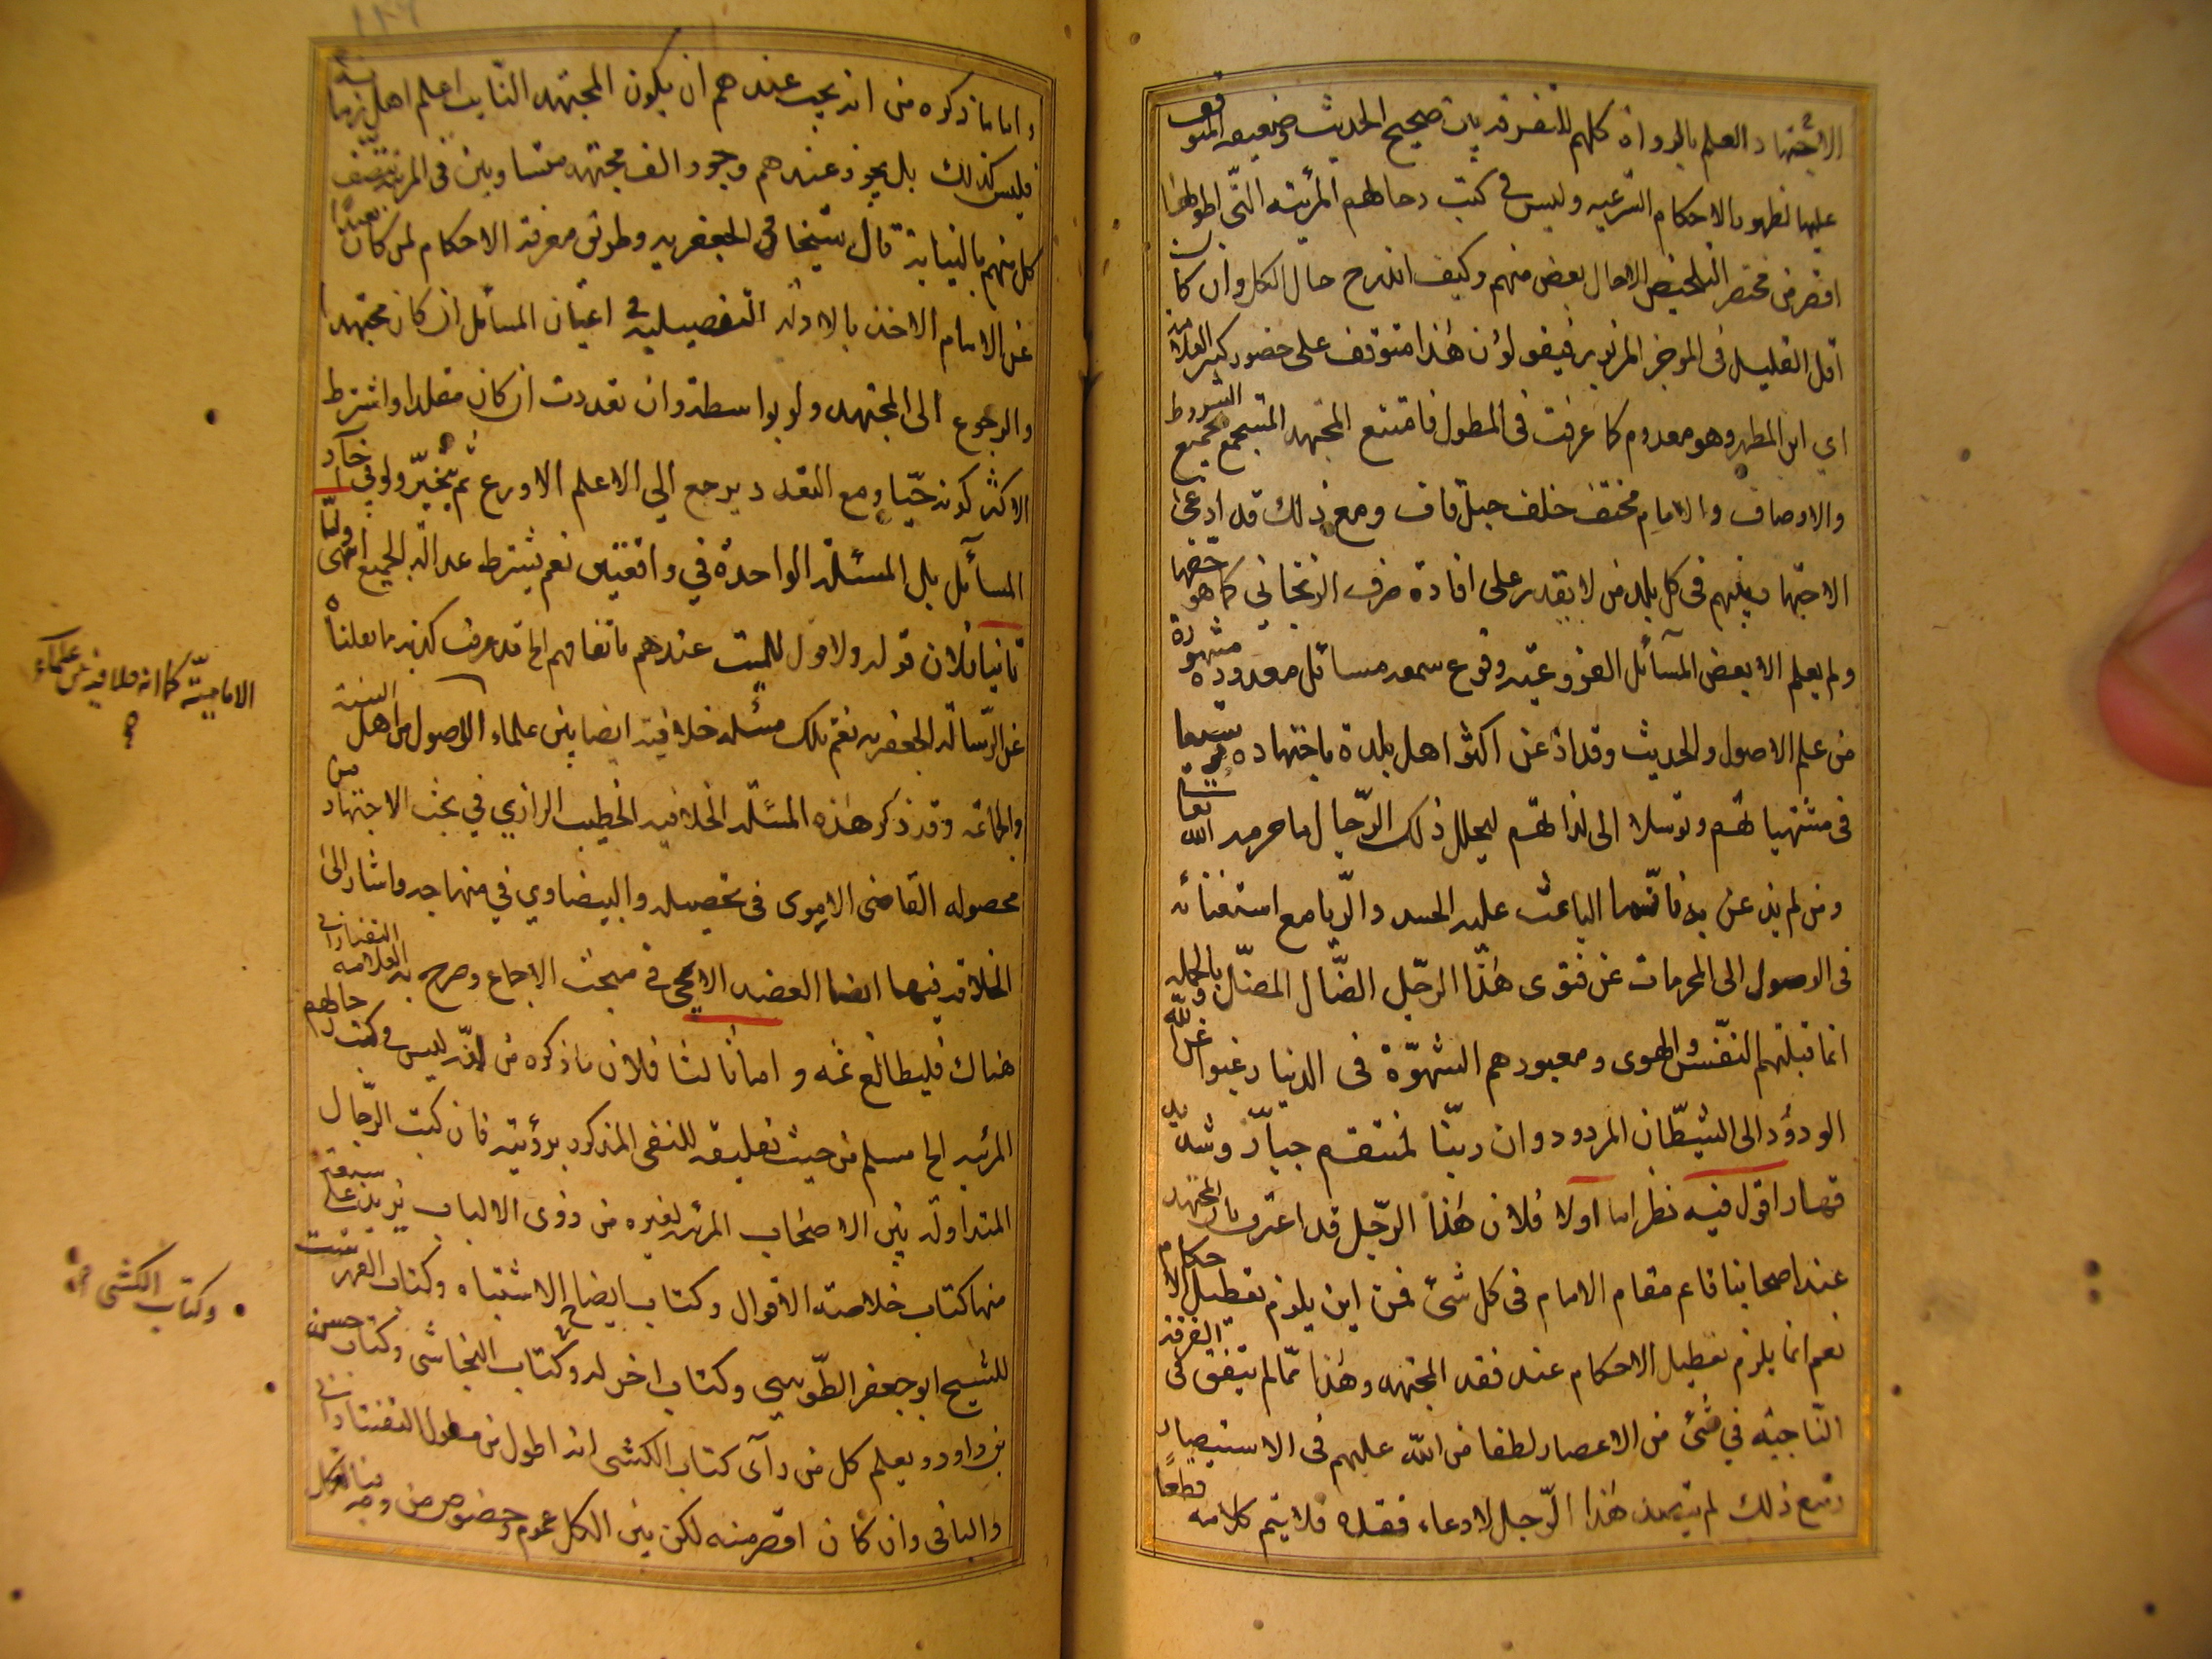 الاجتهاد العلم بالرواة كلهم للتفرقة بين صحيح الحديث وضعيفه المتوقف
عليها ظهور الاحكام الشرعية وليس في كتب رجالهم المرئية التي اطولها
اقصر من مختصر التلخيص الا حال بعض منهم وكيف اندرج حال الكل وان كان
اقل القليل في الموجز المزبور فيقولون هذا متوقف على حضور كبير العلامة
اي ابن المطهر وهو معدوم كما عرفت في المطول فامتنع المجتهد المستجمع لجميع الشروط
والاوصاف والامام مختف خلف جبل قاف ومع ذلك قد ادعى
الاجتهاد منهم في كل بلد من لا يقدر على افادة صرف الزنجاني كما هو حقها
ولم يعلم الا بعض المسائل الفروعية وقرع سمعه مسائل معدودة مشهورة
من علم الاصول والحديث وقد اذعن اكثر اهل بلدة باجتهاده
في مشتهياتهم وتوسلا الى لذاتهم ليحلل ذلك الرجال ما حرمه الله تعالى
ومن لم يذعن به فانما الباعث عليه الحسد والريا مع استغنائه
في الاصول الى المحرمات عن فتوى هذا الرجل الضال المضل وبالجملة
انما قبلتهم النفس والهوى ومعبودهم الشهوة في الدنيا رغبوا عن الله
الودود الى الشيطان المردود وان ربنا لمنتقم جبار وشديد
قهار اقول فيه نظر اما اولا فلان هذا الرجل قد اعترف بان المجتهد
عند اصحابنا قائم مقام الامام في كل شئ فمن اين يلزم تعطيل الاحكام
نعم انما يلزم تعطيل الاحكام عند فقد المجتهد وهذا مما لم يتفق في الفرقة
الناجية في شئ من الاعصار لطفا من الله عليهم في الاستبصار
ومع ذلك لم هذا الرجل لادعاء فقده فلا يتم كلامه قطعا
واما ما ذكره من انه يجب عندهم ان يكون المجتهد النايب اعلم اهل زمانه
فليس كذلك بل يجوز عندهم وجود الف مجتهد متساويين في المرتبة يتصف
كل منهم بالنيابة قال شيخنا في الجعفرية وطريق معرفة الاحكام لمن كان بعيدا
عن الامام الاخذ بالادلة التفصيلية في اعيان المسائل ان كان مجتهدا
والرجوع الى المجتهد ولو بواسطة وان تعددت ان كان مقلدا واشترط
الاكثر كونه حيا ومع التعدد يرجع الي الاعلم الاورع ثم يتخير ولو في آحاد
المسآئل بل المسئلة الواحدة في واقعتين نعم يشترط عدالة الجميع انتهى واما
ثانيا فلان قوله ولا قول للميت عندهم باتفاقهم الخ قد عرفت كذبه بما نقلناه
عن الرسالة الجعفرية نعم تلك مسئلة خلافية ايضا بين علماء الاصول من اهل السنة
والجماعة وقد ذكر هذه المسئلة الخلافية الخطيب الرازي في بحث الاجتهاد من
محصوله القاضي الاموي في تحصيله والبيضاوي في منهاجه واشار الى
الخلاف فيها ايضا العضد الايجي في مبحث الاجماع وصرح به العلامة التفتازاني
هناك فليطالع ثمه واما ثالثا فلان ما ذكره من انه ليس في كتب رجالهم
المرئية الخ مسلم من حيث تعليقه للنفي المذكور برؤيته فان كتب الرجال
المتداولة بين الاصحاب المرئية لغيره من ذوى الالباب يزيد على سبعة
منها كتاب خلاصة الاقوال وكتاب ايضاح الاشتباه وكتاب الفهرست
للشيخ ابو جعفر الطوسي وكتاب اخر له وكتاب النجاشى وكتاب حسن
بن داود ويعلم كل من رآى كتاب الكشى انه اطول من مطول التفتازاني
والباقي وان كان اقصر منه لكن بين الكل عموم وخصوص من وجه
الامامية كما انه خلافية بين علمآء
وكتاب الكشى